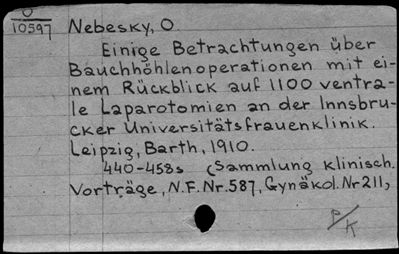 O
10597 Nebesky, O.
Einige Betrachtungen über
Bauchhöhlenoperationen mit ei-
nem Rückblick auf 1100 ventra-
le Laparotomien an der Innsbru-
cker Universitätsfrauenklinik.
Leipzig, Barth, 1910.
440-458s (Sammlung klinisch.
Vorträge, N.F. Nr.587, Gynäkol. Nr 211,
P/K